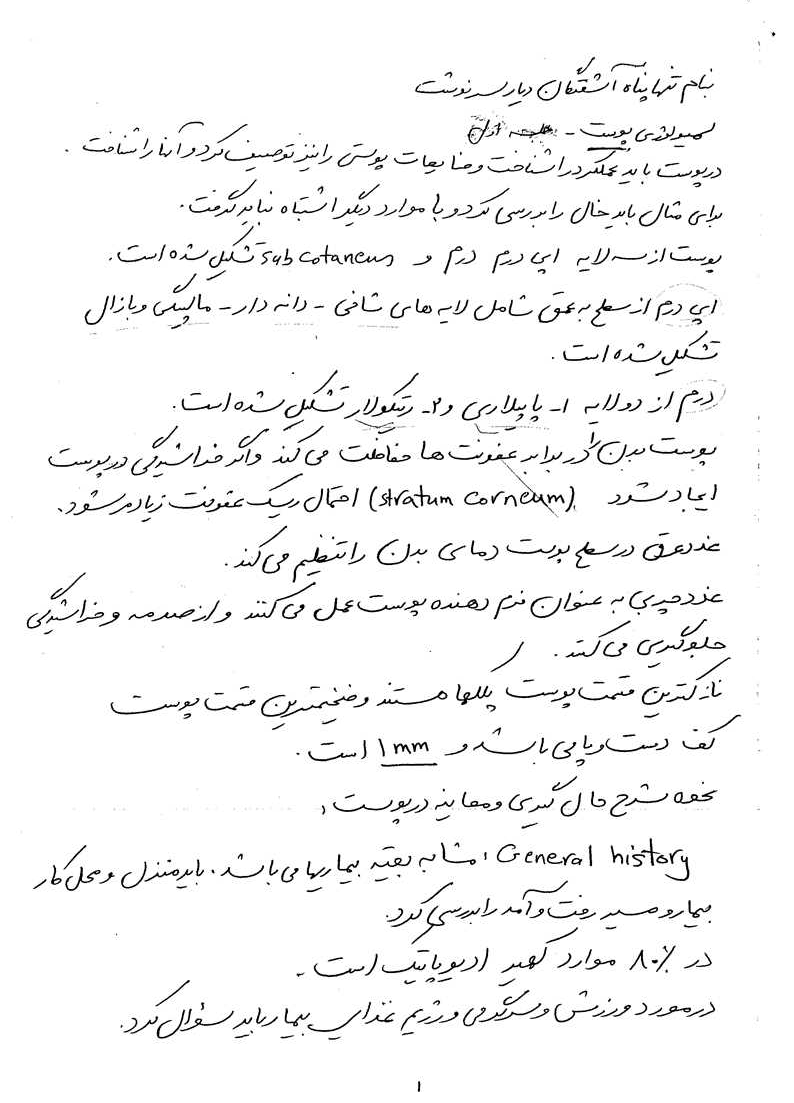 بنام تنها پناه آشفتگان دیار سرنوشت
سمیولوژی پوست - جلسه اول
در پوست باید عملکرد را شناخت و ضایعات پوستی را نیز توصیف کرد و آنها را شناخت.
برای مثال باید خال را بررسی کرد و با موارد دیگر اشتباه نباید گرفت.
پوست از سه لایه اپی درم درم و subcotaneus تشکیل شده است.
اپی درم از سطح به عمق شامل لایه های شاخی - دانه دار - مالپیگی و بازال
تشکیل شده است.
درم از دو لایه ۱- پاپیلاری و ۲- رتیکولار تشکیل شده است.
پوست بدن را در برابر عفونت ها حفاظت می کند و اگر خراشیدگی در پوست
ایجاد شود (stratum corneum) احتمال ریسک عفونت زیاد میشود.
غدد عرق در سطح پوست دمای بدن را تنظیم می کند.
غدد چربی به عنوان نرم دهنده پوست عمل می کنند و از صدمه و خراشیدگی
جلوگیری می کنند.
نازکترین قسمت پوست پلکها هستند و ضخیمترین قسمت پوست
کف دست و پا می باشد و ۱mm است.
نحوه شرح حال گیری و معاینه در پوست:
General history: مشابه بقیه بیماریها می باشد. باید منزل و محل کار
بیمار و مسیر رفت و آمد را بررسی کرد.
در ۸۰٪ موارد کهیر ادیوپاتیک است.
در مورد ورزش و سرگرمی و رژیم غذایی بیمار باید سؤال کرد.
۱